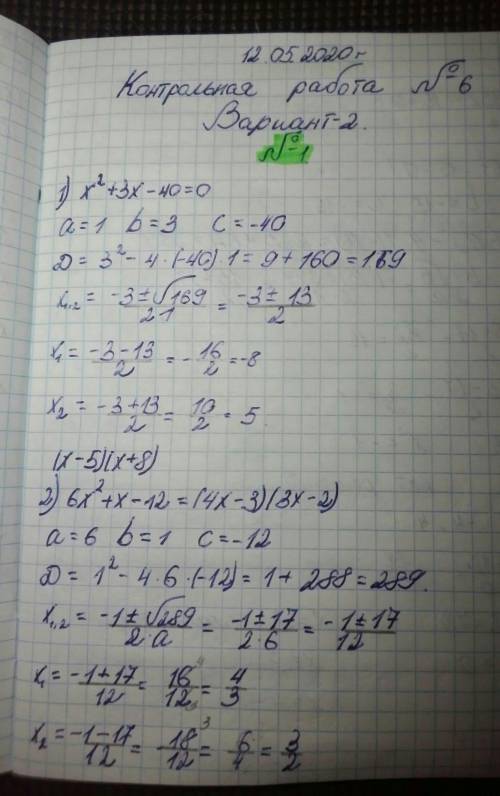 12.05.2020г
Контрольная работа №6
Вариант-2.
№1
1) x²+3x-40=0
a=1 b=3 c=-40
D=3²-4·(-40)·1=9+160=169
x₁,₂= -3±√169/2·1 = -3±13/2
x₁= -3-13/2 = -16/2=-8
x₂= -3+13/2 = 10/2 = 5.
(x-5)(x+8)
2) 6x²+x-12=(4x-3)(3x-2)
a=6 b=1 c=-12
D=1²-4·6·(-12)=1+288=289.
x₁,₂= -1±√289/2·a = -1±17/2·6 = -1±17/12
x₁= -1+17/12 = 16/12 = 4/3
x₂= -1-17/12 = -18/12 = 6/4 = 3/2